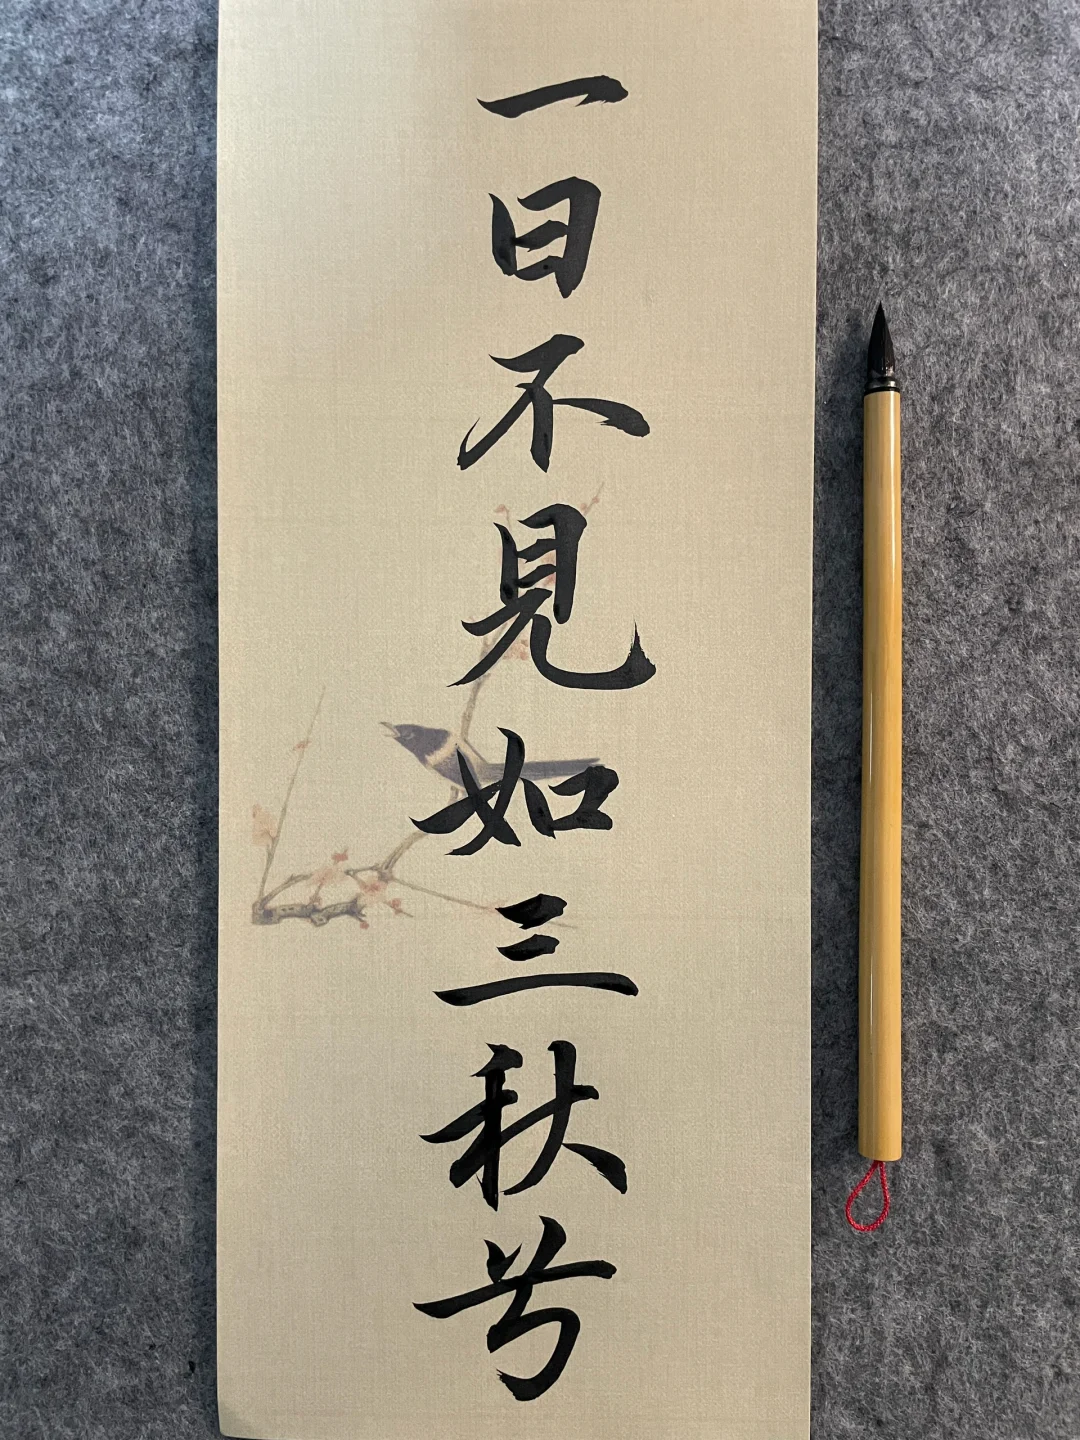 一日不見如三秋兮